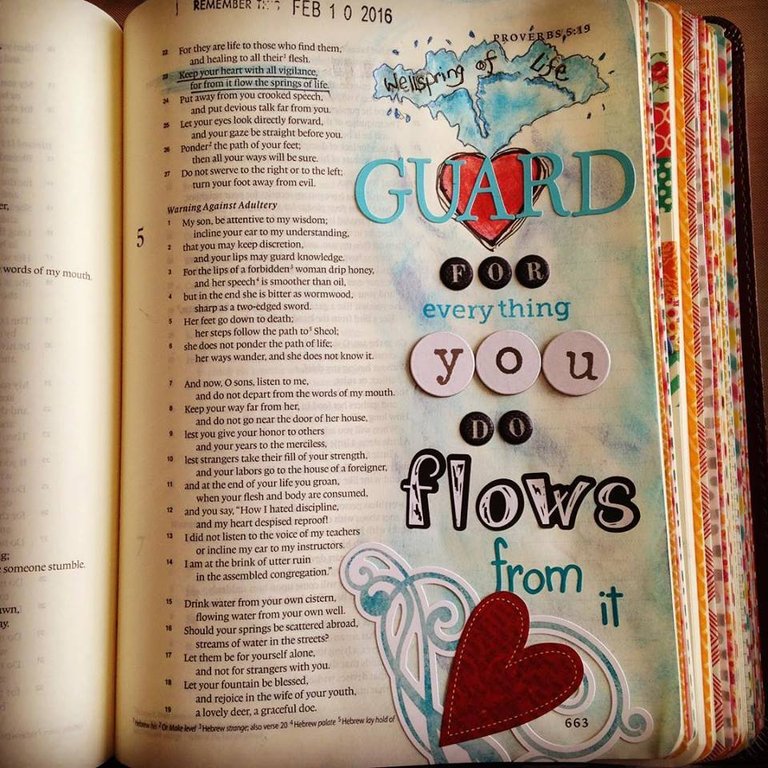 REMEMBER THIS FEB 10 2016
PROVERBS 5:19
22 For they are life to those who find them,
and healing to all their² flesh.
23 Keep your heart with all vigilance,
for from it flow the springs of life.
24 Put away from you crooked speech,
and put devious talk far from you.
25 Let your eyes look directly forward,
and your gaze be straight before you.
26 Ponder² the path of your feet;
then all your ways will be sure.
27 Do not swerve to the right or to the left;
turn your foot away from evil.
Warning Against Adultery
5
1 My son, be attentive to my wisdom;
incline your ear to my understanding,
2 that you may keep discretion,
and your lips may guard knowledge.
3 For the lips of a forbidden³ woman drip honey,
and her speech⁴ is smoother than oil,
4 but in the end she is bitter as wormwood,
sharp as a two-edged sword.
5 Her feet go down to death;
her steps follow the path to⁵ Sheol;
6 she does not ponder the path of life;
her ways wander, and she does not know it.
7 And now, O sons, listen to me,
and do not depart from the words of my mouth.
8 Keep your way far from her,
and do not go near the door of her house,
9 lest you give your honor to others
and your years to the merciless,
10 lest strangers take their fill of your strength,
and your labors go to the house of a foreigner,
11 and at the end of your life you groan,
when your flesh and body are consumed,
12 and you say, "How I hated discipline,
and my heart despised reproof!
13 I did not listen to the voice of my teachers
or incline my ear to my instructors.
14 I am at the brink of utter ruin
in the assembled congregation."
15 Drink water from your own cistern,
flowing water from your own well.
16 Should your springs be scattered abroad,
streams of water in the streets?
17 Let them be for yourself alone,
and not for strangers with you.
18 Let your fountain be blessed,
and rejoice in the wife of your youth,
19 a lovely deer, a graceful doe.
¹ Hebrew his ² Or Make level ³ Hebrew strange; also verse 20 ⁴ Hebrew palate ⁵ Hebrew lay hold of
663
Wellspring of Life
GUARD
FOR
everything
you
DO
flows
from
it
words of my mouth.
someone stumble.